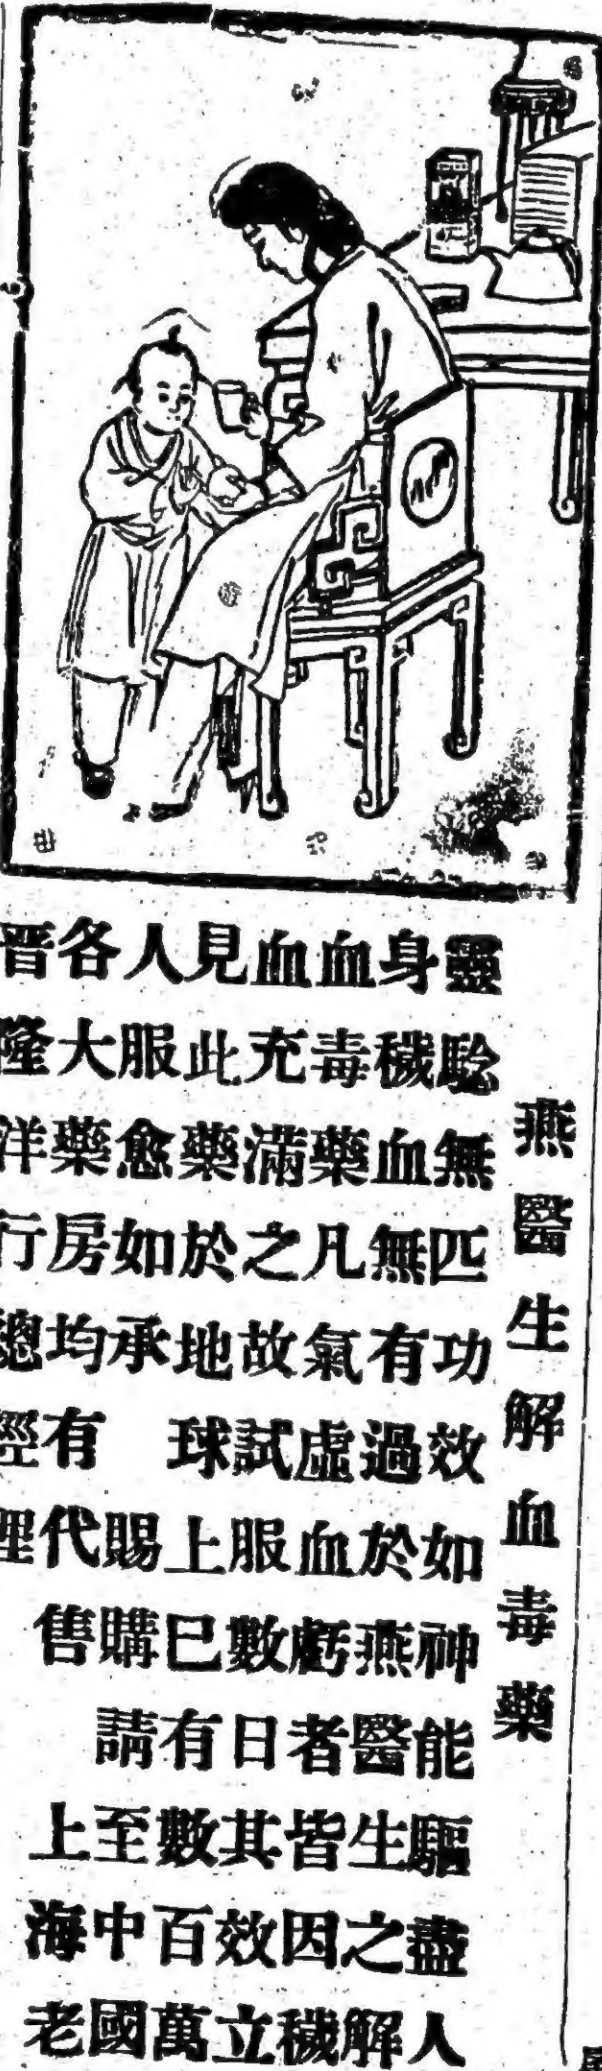 燕醫生解血毒藥
靈騐無匹功效如神能驅盡人
身穢血無有過於燕醫生之解
血毒藥凡氣虛血虧者皆因穢
血充滿之故試服數日其效立
見此藥於地球上已有數百萬
人服愈如承 賜購請至中國
各大藥房均有代售 上海老
晋隆洋行總經理